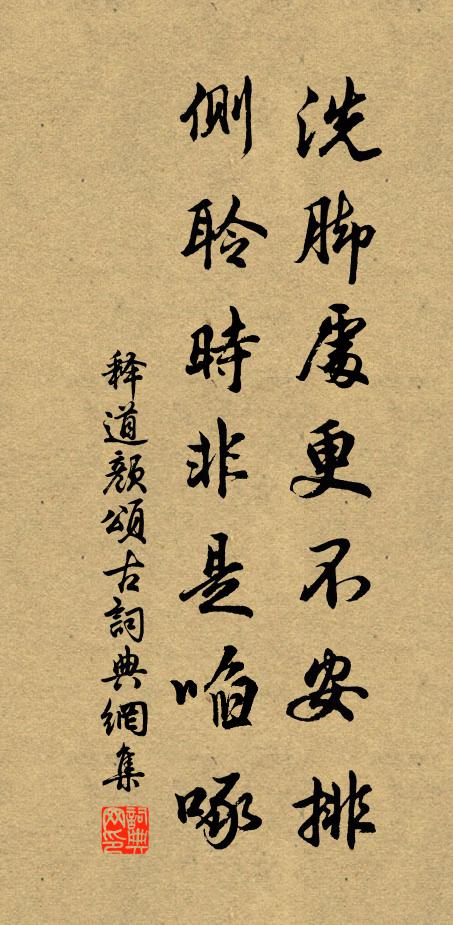 洗脚處更不安排
側聆時非是啗啄
释道颜頌古詞典網集
詞典网印